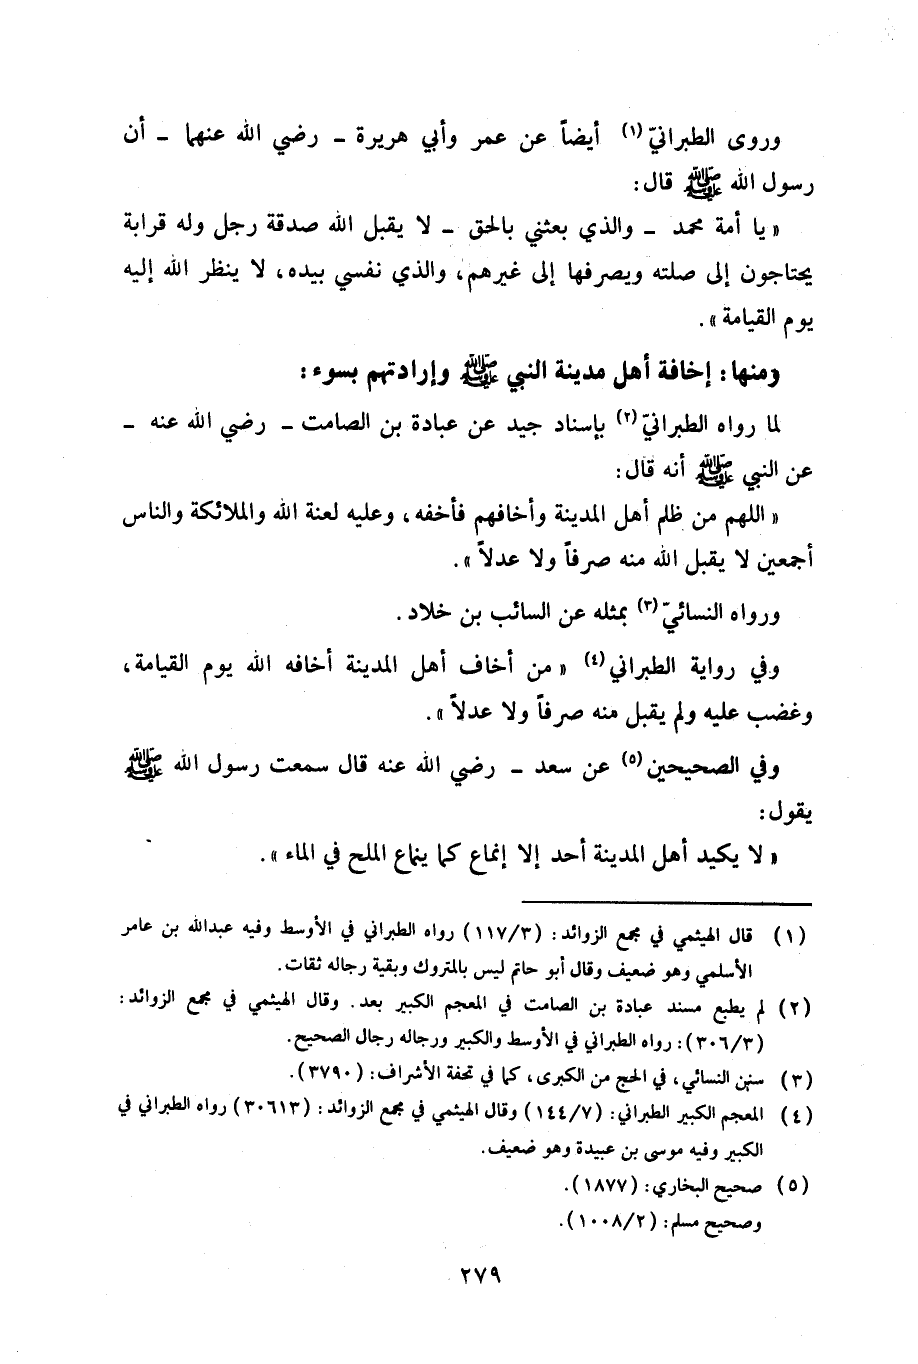 وروى الطبرانيّ (١) أيضاً عن عمر وأبي هريرة ـ رضي الله عنهما ـ أن
رسول الله ﷺ قال:
« يا أمة محمد ـ والذي بعثني بالحق ـ لا يقبل الله صدقة رجل وله قرابة
يحتاجون إلى صلته ويصرفها إلى غيرهم، والذي نفسي بيده، لا ينظر الله إليه
يوم القيامة ».
ومنها: إخافة أهل مدينة النبي ﷺ وإرادتهم بسوء:
لما رواه الطبرانيّ (٢) بإسناد جيد عن عبادة بن الصامت ـ رضي الله عنه ـ
عن النبي ﷺ أنه قال:
« اللهم من ظلم أهل المدينة وأخافهم فأخفه، وعليه لعنة الله والملائكة والناس
أجمعين لا يقبل الله منه صرفاً ولا عدلاً ».
ورواه النسائيّ (٣) بمثله عن السائب بن خلاد.
وفي رواية الطبراني (٤) « من أخاف أهل المدينة أخافه الله يوم القيامة،
وغضب عليه ولم يقبل منه صرفاً ولا عدلاً ».
وفي الصحيحين (٥) عن سعد ـ رضي الله عنه قال سمعت رسول الله ﷺ
يقول:
« لا يكيد أهل المدينة أحد إلا إنماع كما ينماع الملح في الماء ».
(١) قال الهيثمي في مجمع الزوائد: (١١٧/٣) رواه الطبراني في الأوسط وفيه عبدالله بن عامر
الأسلمي وهو ضعيف وقال أبو حاتم ليس بالمتروك وبقية رجاله ثقات.
(٢) لم يطبع مسند عبادة بن الصامت في المعجم الكبير بعد. وقال الهيثمي في مجمع الزوائد:
(٣٠٦/٣): رواه الطبراني في الأوسط والكبير ورجاله رجال الصحيح.
(٣) سنن النسائي، في الحج من الكبرى، كما في تحفة الأشراف: (٣٧٩٠).
(٤) المعجم الكبير الطبراني: (١٤٤/٧) وقال الهيثمي في مجمع الزوائد: (٣٠٦١٣) رواه الطبراني في
الكبير وفيه موسى بن عبيدة وهو ضعيف.
(٥) صحيح البخاري: (١٨٧٧).
وصحيح مسلم: (١٠٠٨/٢).
٢٧٩